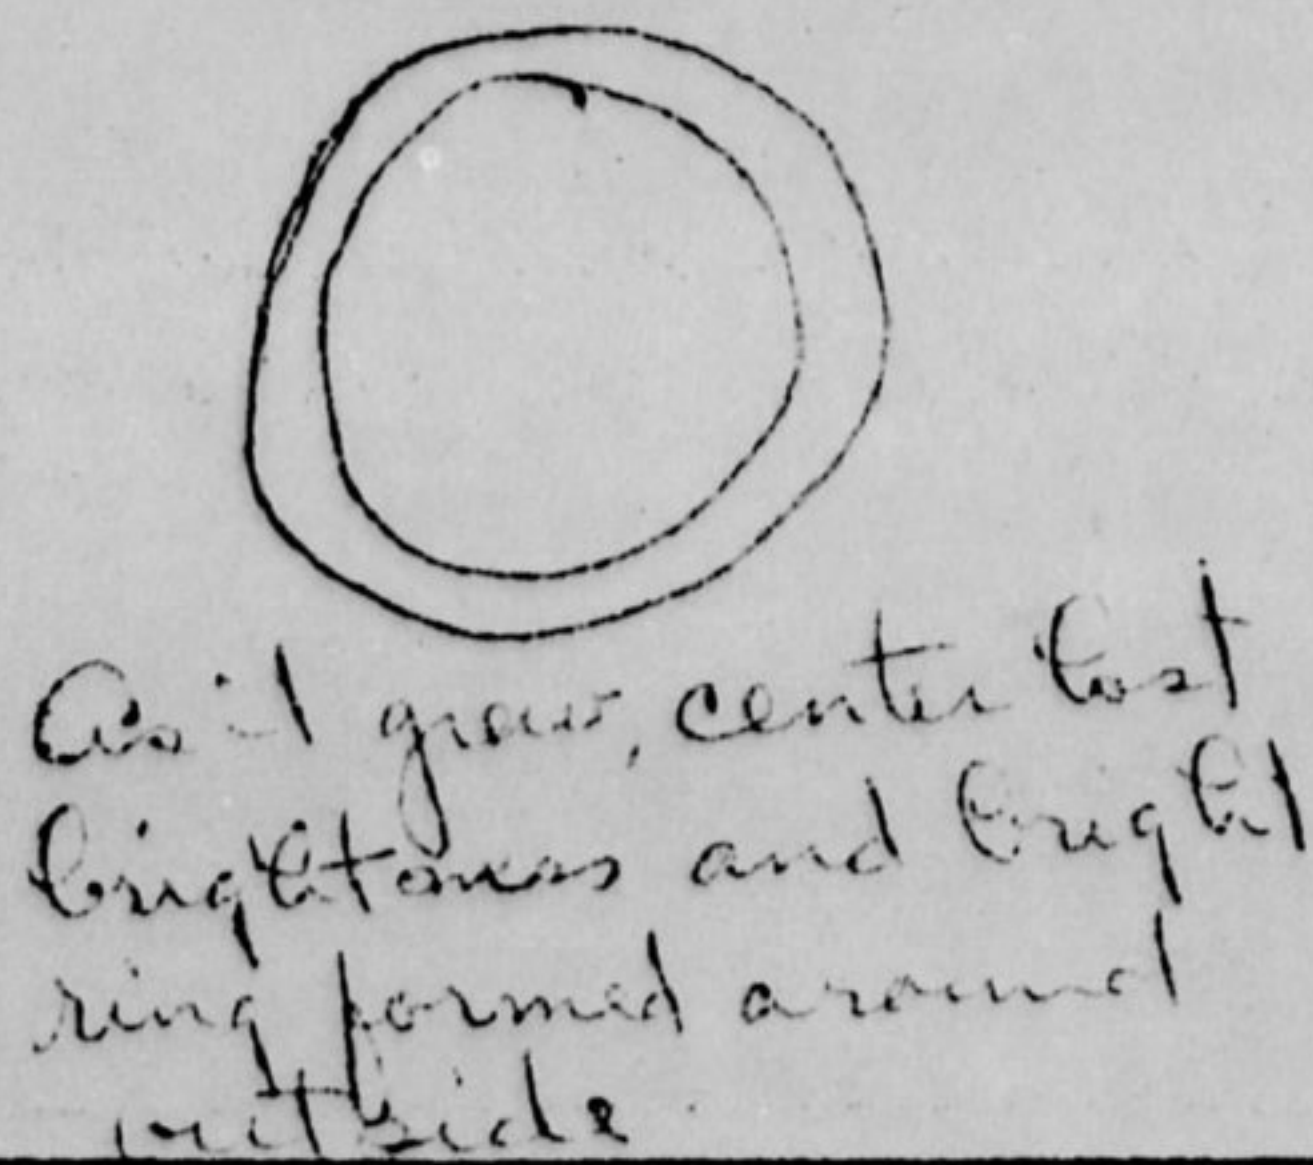 As it grew, center lost
brightness and bright
ring formed around
outside.